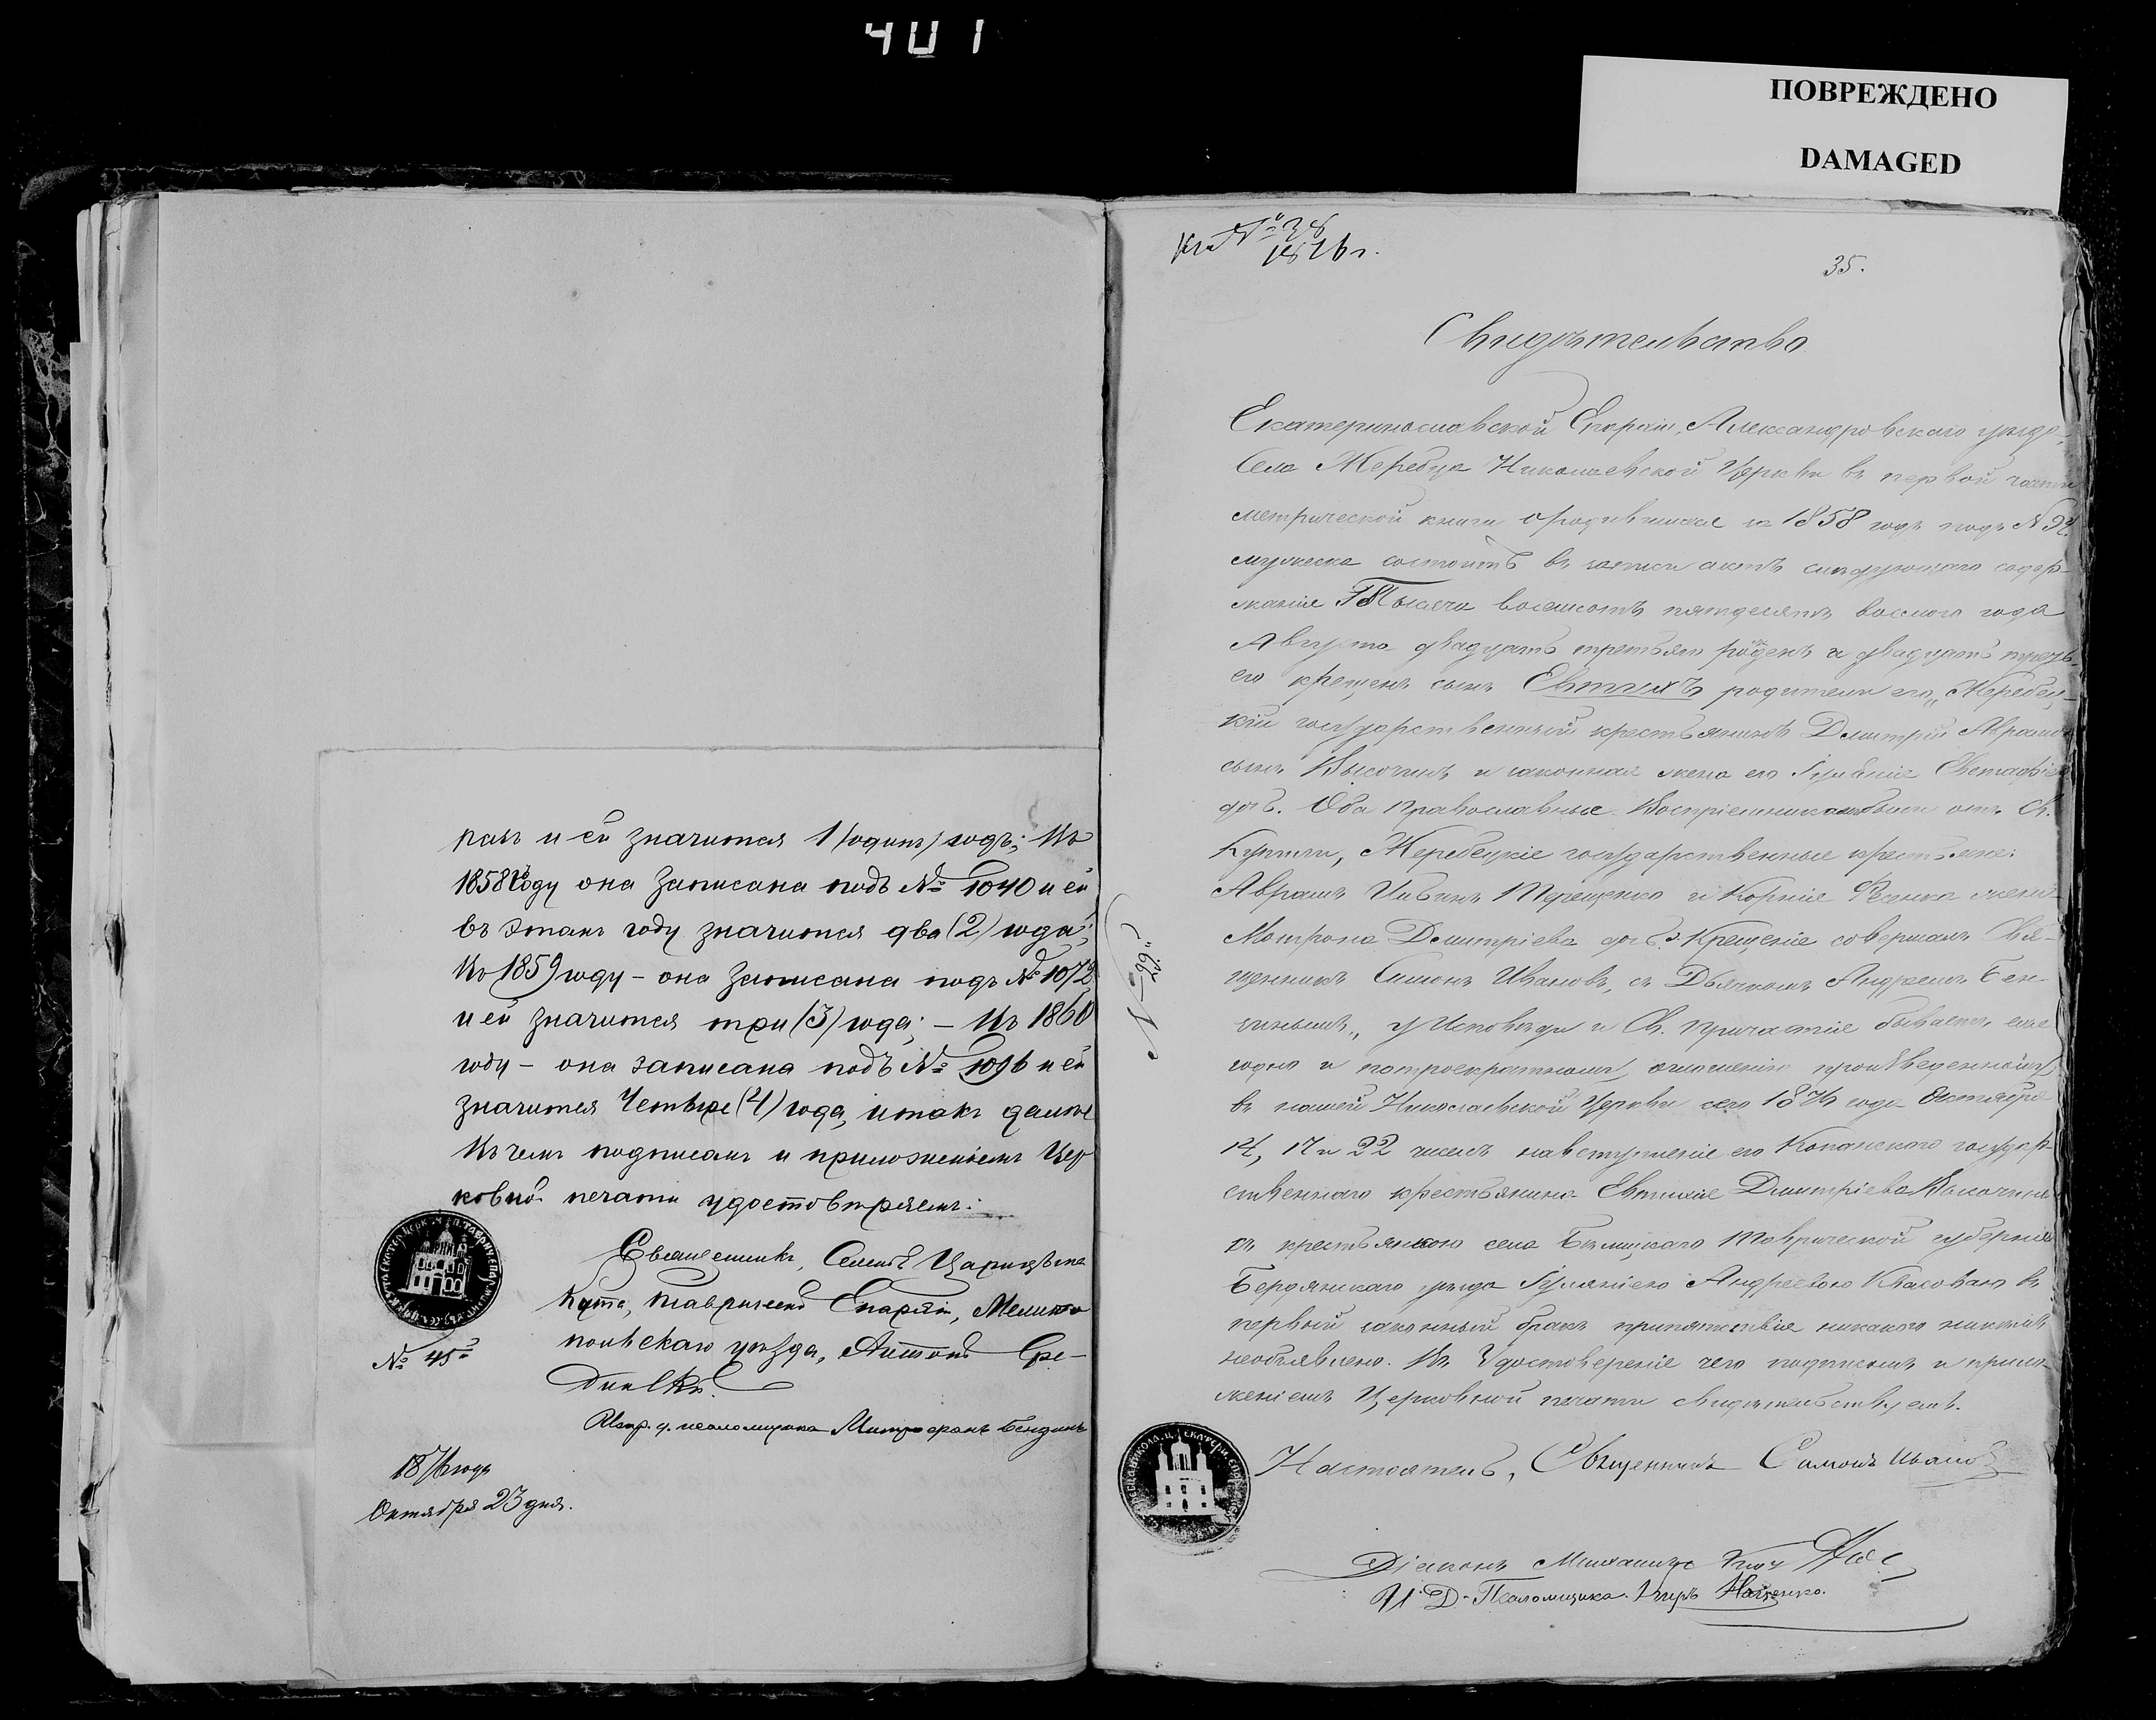 401
ПОВРЕЖДЕНО
DAMAGED
рахъ и ей значится 1 /одинъ/ годъ; Въ
1858 году она записана подъ № 1040 и ей
въ этомъ году значится два (2) года;
Въ 1859 году – она записана подъ № 1072
и ей значится три (3) года; – Въ 1860
году – она записана подъ № 1096 и ей
значится Четыре (4) года, и такъ далѣе
Въ чемъ подписомъ и приложеніемъ Цер
ковной печати удостовѣряемъ:
Священникъ, Села Царицына
Кута, Таврической Епархіи, Мелито
польскаго уѣзда, Антоній
№ 45
Испр. д. псаломщика Митрофанъ Бендинъ
1876 годъ
Октября 23 дня.
№ 38
1876 г.
35.
Свидѣтельство
Екатеринославской Епархіи, Александровскаго уѣзда,
Села Жеребца Николаевской Церкви въ первой части
метрической книги о родившихся за 1858 годъ подъ №
мужеска состоитъ въ записи актъ слѣдующаго содер-
жанія Тысяча восемсотъ пятдесятъ восмого года
Августа двадцать третьяго рожденъ и двадцать треть-
его крещенъ сынъ Евтихъ родители его „Жеребец-
кій государственный крестьянинъ Дмитрій Аврамов
сынъ Высочинъ и законная жена его Гуліанія Евстафіева
дочь. Оба православные. Воспріемниками были отъ Св.
Купели, Жеребецкіе государственные крестьяне:
Аврамъ Терещенко и Корнія Фесенка жена
Матрона Дмитріева дочь. Крещеніе совершалъ Свя-
щенникъ Симонъ Ивановъ, съ Дьячкомъ Андреемъ Бен-
зинымъ„ у Исповѣди и Св. Причастія бываетъ еже
годно и по троекратному оглашенію произведенному
въ нашей Николаевской Церкви сего 1876 года Октября
14, 17 и 22 чиселъ на вступленіе его Копанского государ-
ственнаго крестьянина Евтихія Дмитріева Высочина
съ крестьянкою села Таврической губерніи
Бердянскаго уѣзда Гуліаніею Андреевою въ
первый законный бракъ препятствія никакого никѣмъ
необъявлено. Въ Удостовѣреніе чего подписомъ и прило-
женіемъ Церковной печати свидѣтельствуемъ.
Настоятель, Священникъ Симонъ Ивановъ
Діаконъ Михаилъ
И. Д. Псаломщика